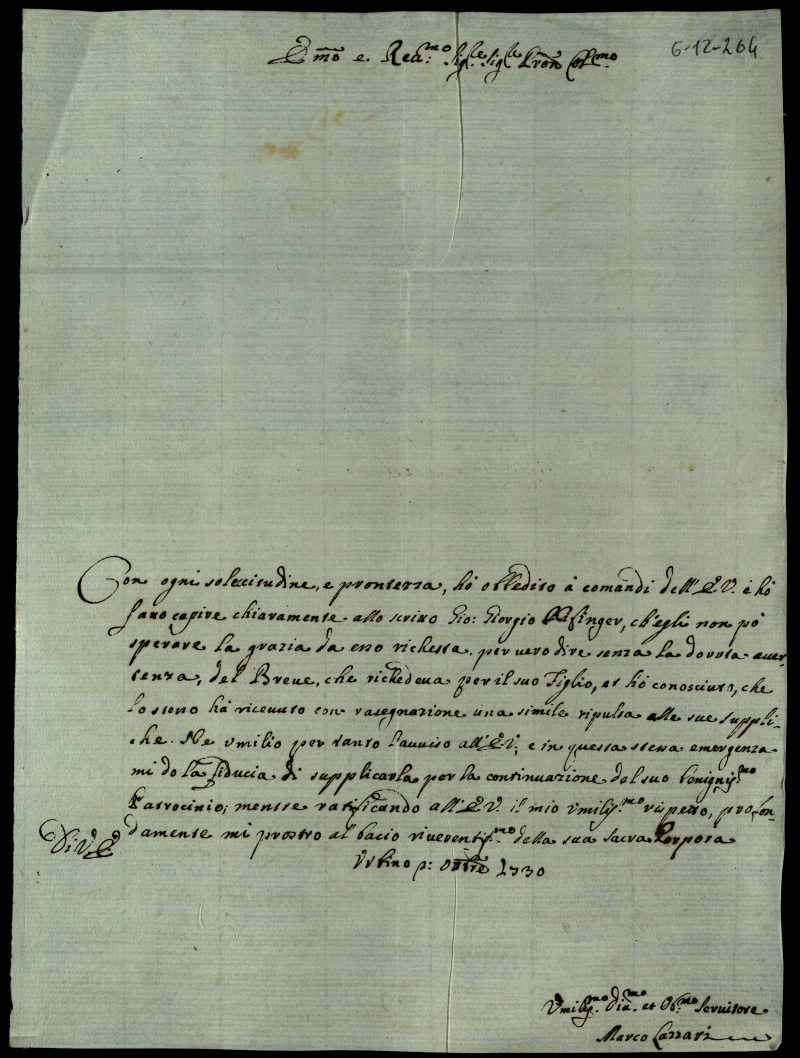 Em̃o e Reu:mo Sig.le Sig.le Pron Col.mo
6-12-264
Con ogni solecitudine, e prontezza, hò obbedito à comandi dell'E.V. e hò
fatto capire chiaramente allo scritto Gio: Giorgio, ch'egli non pò
sperare la grazia da esso richiesta, per vero dire senza la dovuta auer-
tenza, del Breue, che richiedeua per il suo Figlio, et hò conosciuto, che
lo stesso hà riceuuto con rasegnazione una simile ripulsa alle sue suppli-
che. Ne vmilio per tanto l'auuiso all'E.V., e in questa stessa emergenza
mi dò la fiducia di supplicarla per la continuazione del suo benignis.mo
Patrocinio; mentre ratificando all'E.V. il mio vmilis.mo rispetto, profon-
damente mi prostro al bacio riuerentis.mo della sua Sacra Porpora
Di V.E.
Vrbino p: Ottbre 1730
Vmilis.mo Diu.mo et Ob.mo Seruitore
Marco Lazzari